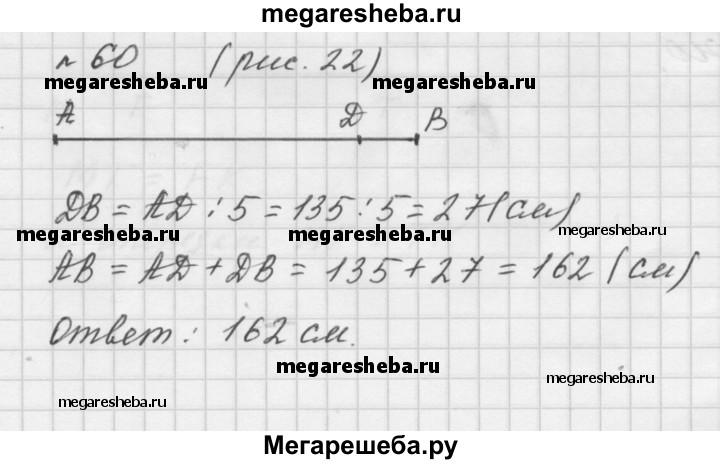 megaresheba.ru
№ 60 (рис. 22)
megaresheba.ru megaresheba.ru
A D B
DB = AD : 5 = 135 : 5 = 27 (см)
megaresheba.ru megaresheba.ru megaresheba.ru
AB = AD + DB = 135 + 27 = 162 (см)
Ответ: 162 см.
megaresheba.ru
megaresheba.ru megaresheba.ru
Мегарешеба.ру